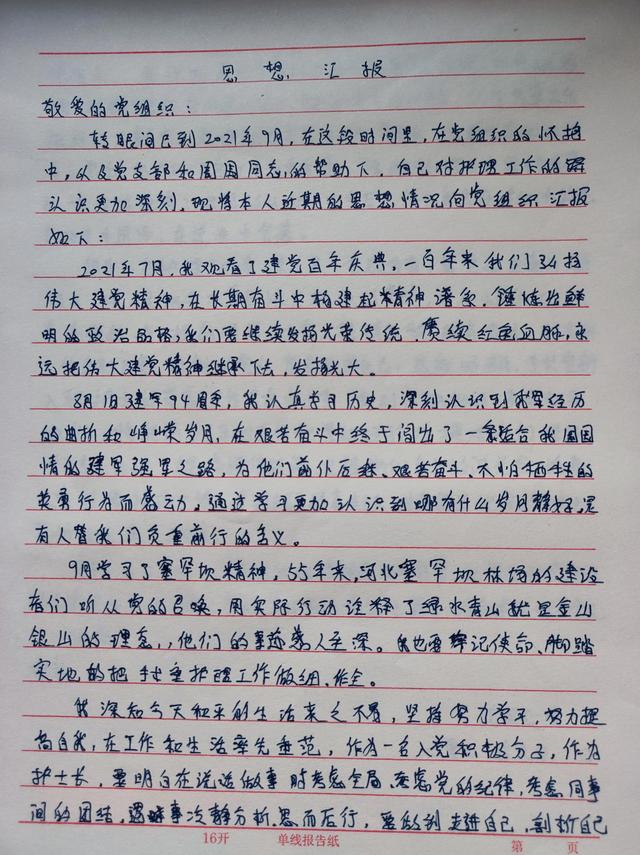 思想汇报
敬爱的党组织：
转眼间已到2021年9月，在这段时间里，在党组织的怀抱
中，以及党支部和周围同志的帮助下，自己对护理工作的
认识更加深刻。现将本人近期的思想情况向党组织汇报
如下：
2021年7月，我观看了建党百年庆典，一百年来我们弘扬
伟大建党精神，在长期奋斗中构建起精神谱系，锤炼出鲜
明的政治品格，我们要继续发扬光荣传统，赓续红色血脉，永
远把伟大建党精神继承下去，发扬光大。
8月1日建军94周年，我认真学习历史，深刻认识到我军经历
的曲折和峥嵘岁月，在艰苦奋斗中终于闯出了一条适合我国国
情的建军强军之路，为他们前仆后继、艰苦奋斗、不怕牺牲的
英勇行为而感动。通过学习更加认识到哪有什么岁月静好，是
有人替我们负重前行的含义。
9月学习了塞罕坝精神，55年来，河北塞罕坝林场的建设
者们听从党的召唤，用实际行动诠释了绿水青山就是金山
银山的理念，他们的事迹感人至深。我也要牢记使命、脚踏
实地的把护理工作做细、做全。
我深知今天和平的生活来之不易，坚持努力学习，努力提
高自我，在工作和生活率先垂范，作为一名入党积极分子，作为
护士长，要明白在说话做事时考虑全局、考虑党的纪律，考虑同事
间的团结，遇事冷静分析，思而后行，要做到走进自己，剖析自己
16开 单线报告纸 第 页